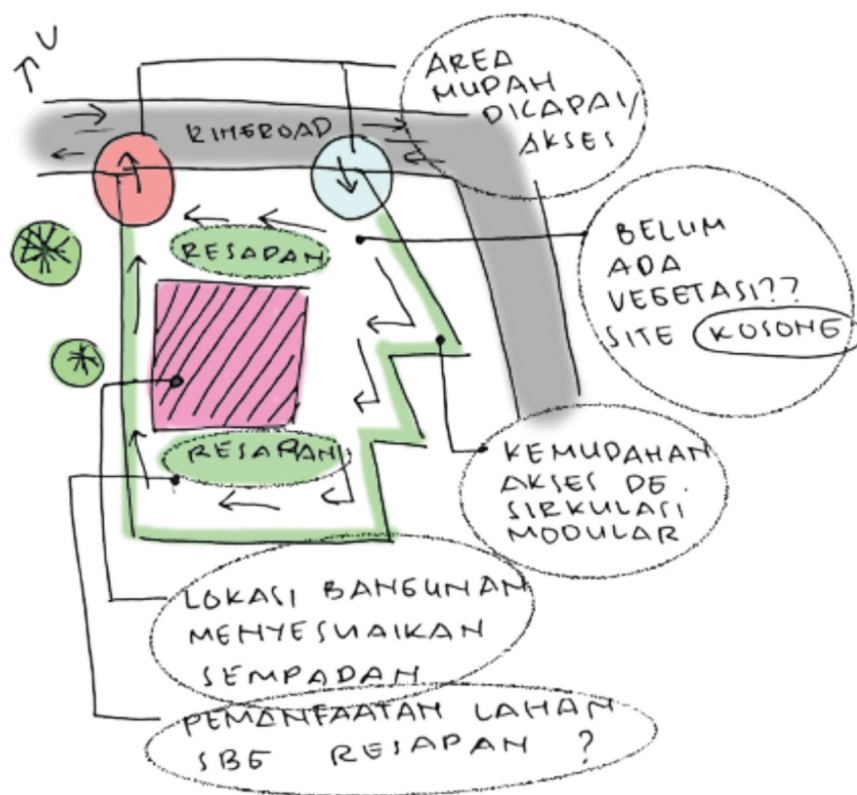 U
AREA
MUDAH
DICAPAI/
AKSES
RINGROAD
RESAPAN
BELUM
ADA
VEGETASI??
SITE KOSONG
RESAPAN
KEMUDAHAN
AKSES DG.
SIRKULASI
MODULAR
LOKASI BANGUNAN
MENYESUAIKAN
SEMPADAN
PEMANFAATAN LAHAN
SBG RESAPAN ?